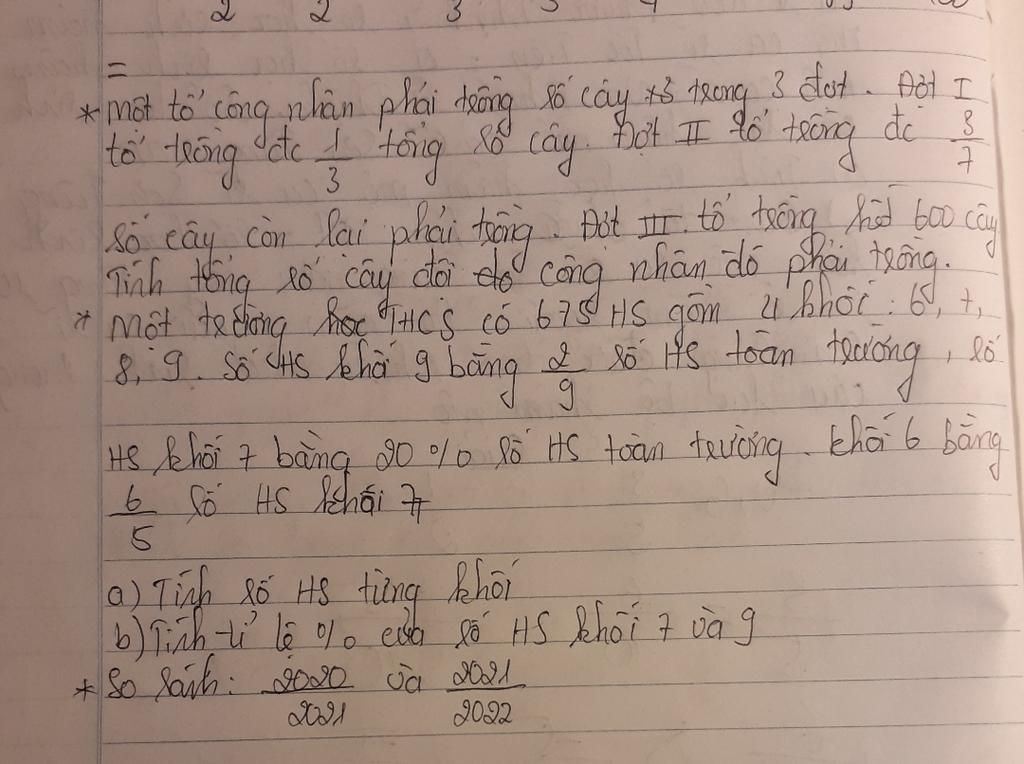 =
* Một tổ công nhân phải trồng số cây trong 3 đợt. Đợt I
tổ trồng đc 1/3 tổng số cây. Đợt II tổ trồng đc 3/7
số cây còn lại phải trồng. Đợt III tổ trồng hết 600 cây
Tính tổng số cây đội công nhân đó phải trồng.
* Một trường học THCS có 675 HS gồm 4 khối: 6, 7,
8, 9. Số HS khối 9 bằng 2/9 số HS toàn trường, số
HS khối 7 bằng 20% số HS toàn trường. khối 6 bằng
6/5 số HS khối 7
a) Tính số HS từng khối
b) Tính tỉ lệ % của số HS khối 7 và 9
* So sánh: 2020/2021 và 2021/2022